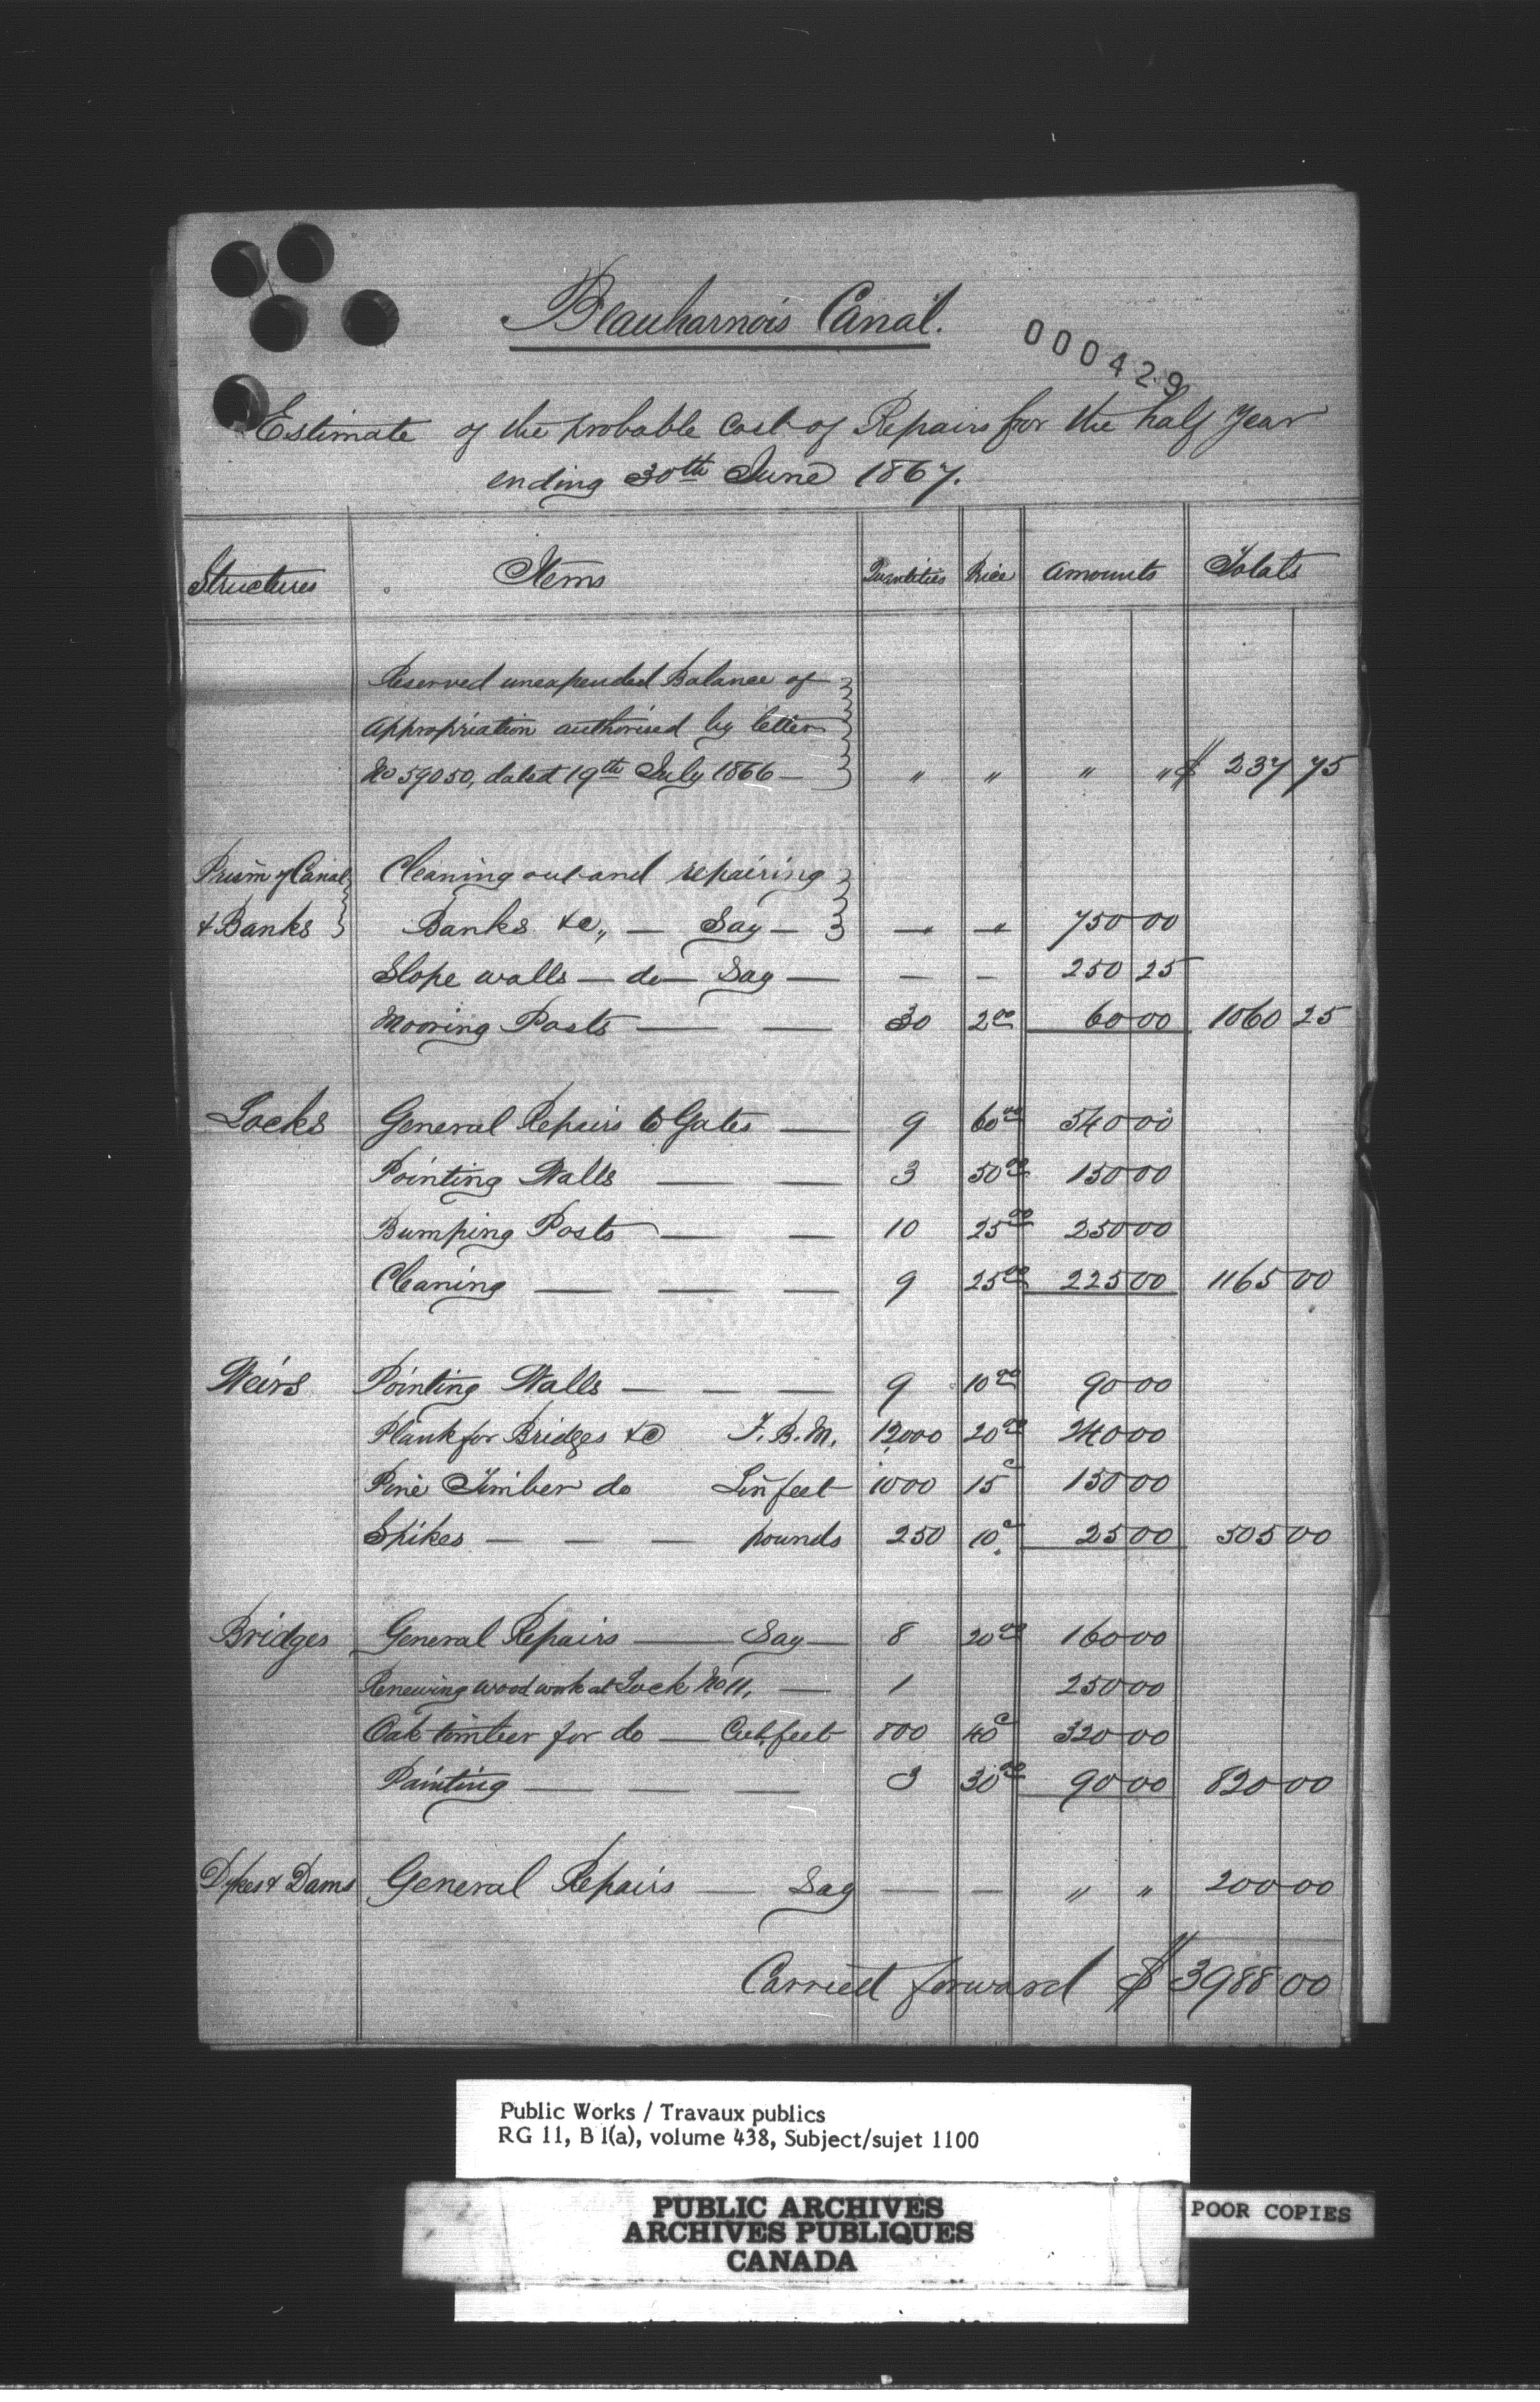 Beauharnois Canal.
000429
Estimate of the probable cost of Repairs for the half Year
ending 30th June 1867.
Structures Items Quantities Price Amounts Totals
Reserved unexpended Balance of
Appropriation authorised by letter
No 59050, dated 19th July 1866 — " " " " $ 237 75
Prism of Canal Cleaning out and repairing
& Banks Banks &c,, — Say — — — 750 00
Slope walls — do — Say — — — 250 25
Mooring Posts — — 30 2 00 60 00 1060 25
Locks General Repairs to Gates — 9 60 00 540 00
Pointing Walls — — 3 50 00 150 00
Bumping Posts — — 10 25 00 250 00
Cleaning — — — 9 25 00 225 00 1165 00
Weirs Pointing Walls — — — 9 10 00 90 00
Plank for Bridges &c F. B. M. 12000 20 00 240 00
Pine Timber do Lin feet 1000 15c 150 00
Spikes — — — pounds 250 10c 25 00 505 00
Bridges General Repairs — Say — 8 20 00 160 00
Renewing wood work at Lock No 11, — 1 250 00
Oak timber for do — Cub. feet 800 40c 320 00
Painting — — — 3 30 00 90 00 820 00
Dykes & Dams General Repairs — Say — — " " 200 00
Carried forward $ 3988 00
Public Works / Travaux publics
RG 11, B 1(a), volume 438, Subject/sujet 1100
PUBLIC ARCHIVES
ARCHIVES PUBLIQUES
CANADA
POOR COPIES